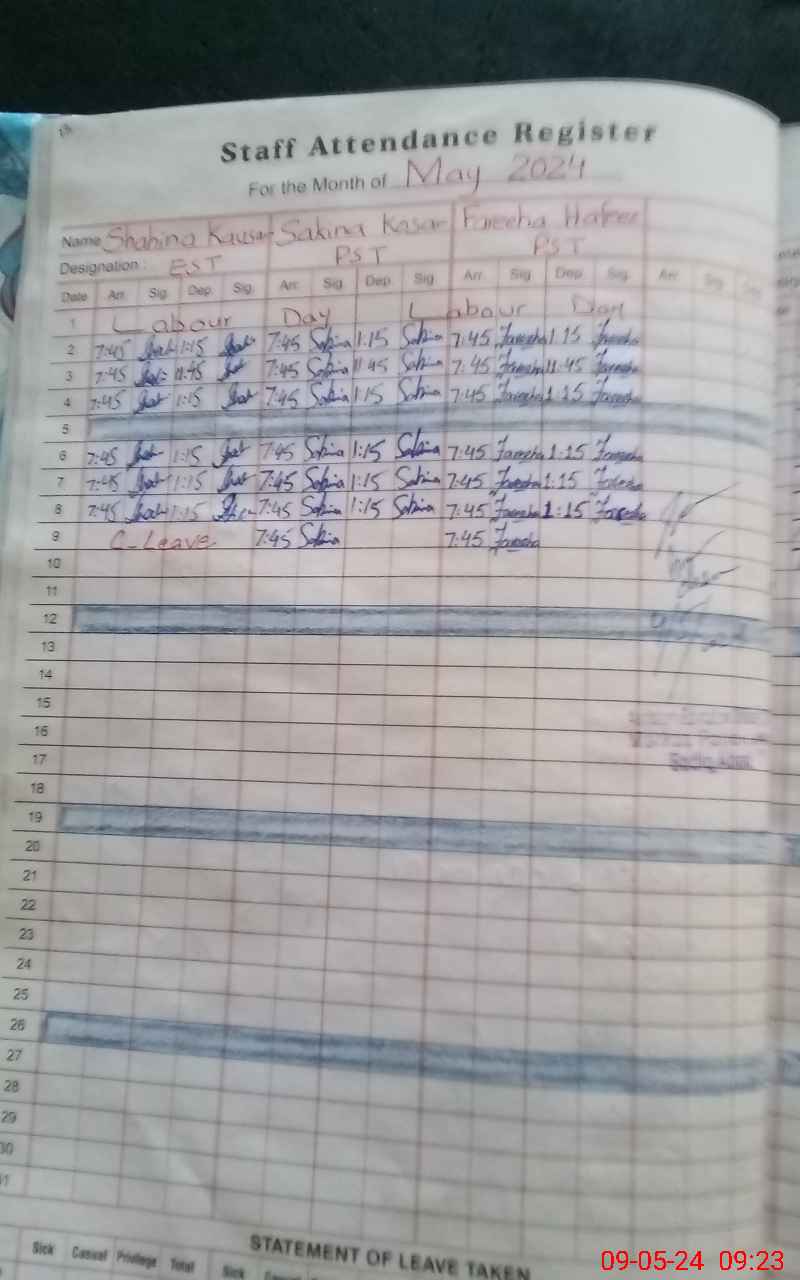 Staff Attendance Register
For the Month of May 2024
Name Shahina Kausar Sakina Kasar Fareeha Hafeez
Designation : EST PST PST
Date Arr. Sig. Dep. Sig. Arr. Sig. Dep. Sig. Arr. Sig. Dep. Sig. Arr. Sig.
1 Labour Day Labour Day
2 7:45 1:15 7:45 Sakina 1:15 Sakina 7:45 Fareeha 1:15 Fareeha
3 7:45 11:45 7:45 Sakina 11:45 Sakina 7:45 Fareeha 11:45 Fareeha
4 7:45 1:15 7:45 Sakina 1:15 Sakina 7:45 Fareeha 1:15 Fareeha
5
6 7:45 1:15 7:45 Sakina 1:15 Sakina 7:45 Fareeha 1:15 Fareeha
7 7:45 1:15 7:45 Sakina 1:15 Sakina 7:45 Fareeha 1:15 Fareeha
8 7:45 1:15 7:45 Sakina 1:15 Sakina 7:45 Fareeha 1:15 Fareeha
9 C-Leave 7:45 Sakina 7:45 Fareeha
10
11
12
13
14
15
16
17
18
19
20
21
22
23
24
25
26
27
28
29
30
31
STATEMENT OF LEAVE TAKEN
Sick Casual Privilege Total Sick
09-05-24 09:23